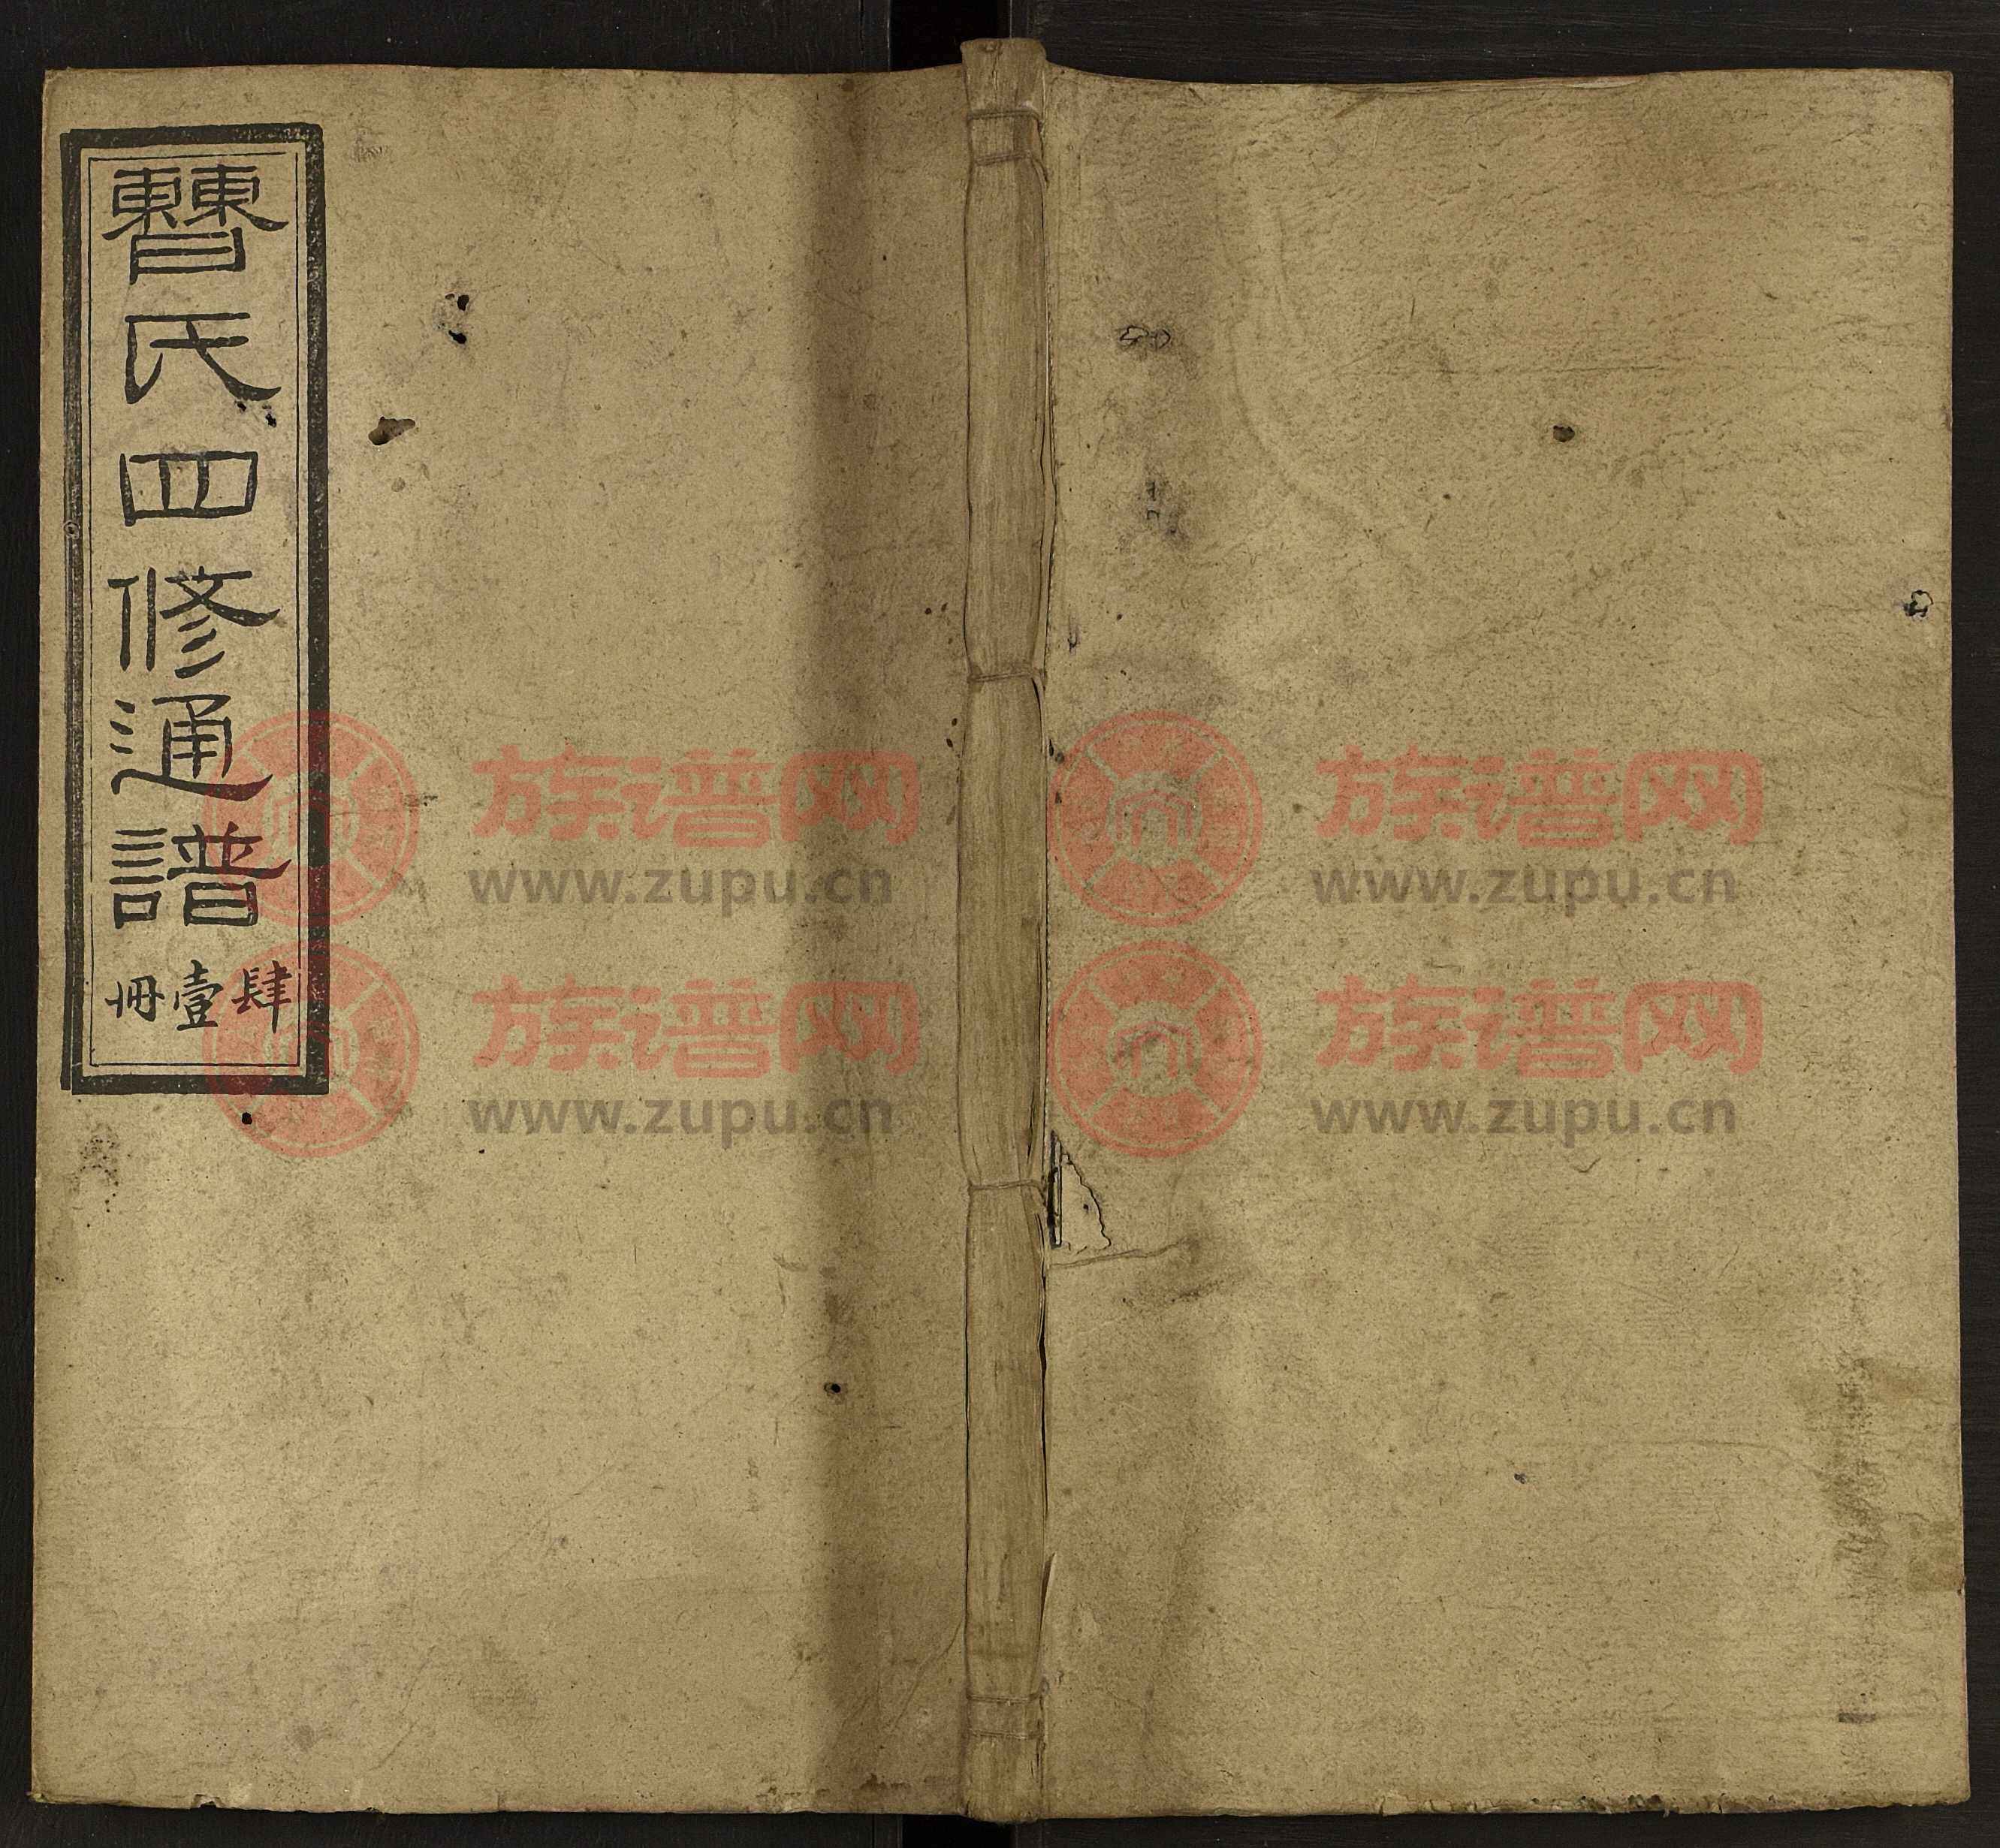 𣍘氏四修通譜
肆壹冊
族谱网
www.zupu.cn
族谱网
www.zupu.cn
族谱网
www.zupu.cn
族谱网
www.zupu.cn